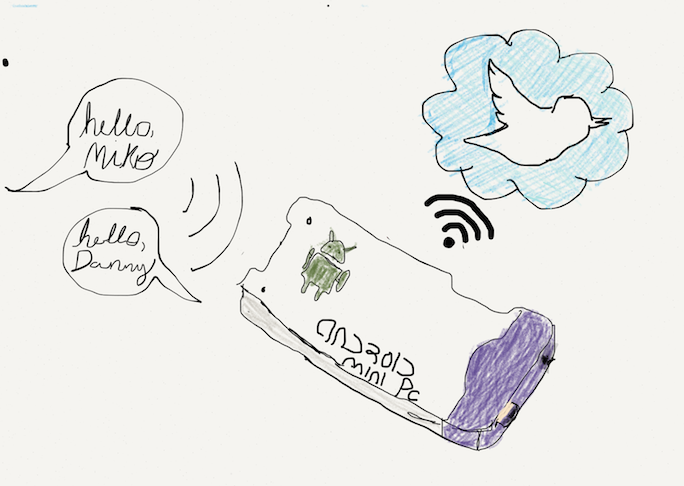 hello,
Miko
hello,
Danny
ANDROID
mini Pc